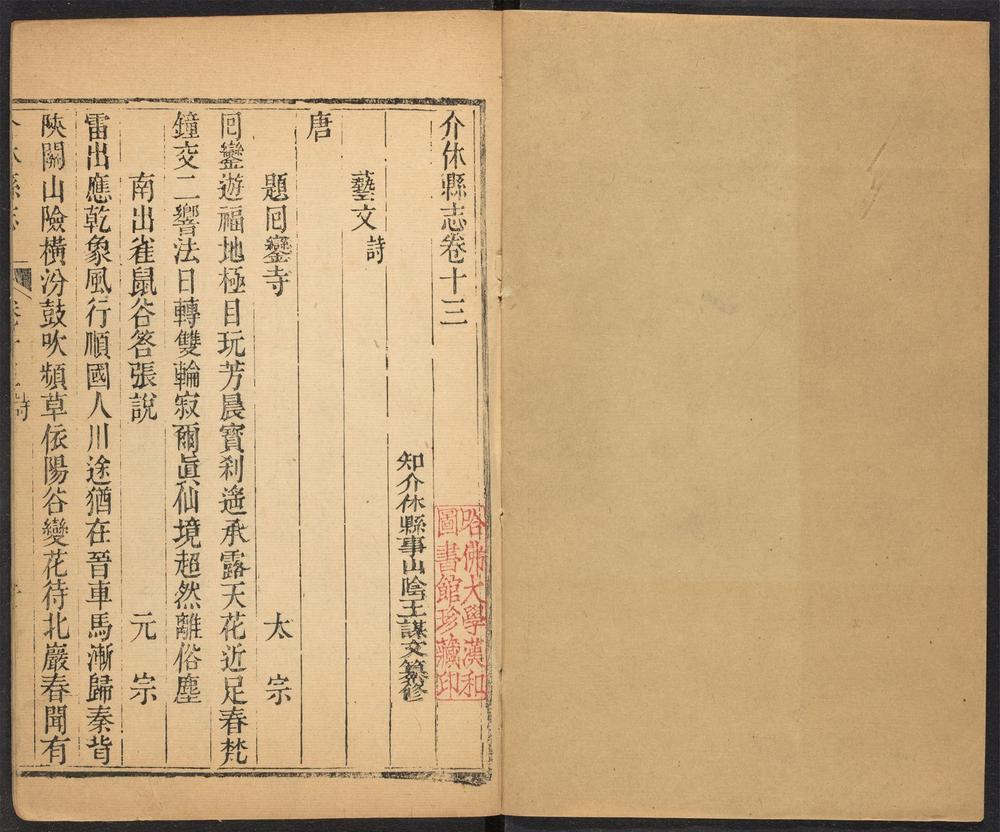 介休縣志卷十三
哈佛大學漢和
圖書館珍藏印
知介休縣事山陰王謀文纂修
藝文 詩
唐
題囘鑾寺 太宗
囘鑾遊福地極目玩芳晨寳刹遙承露天花近足春梵
鐘交二響法日轉雙輪寂爾眞仙境超然離俗塵
南出雀鼠谷答張說 元宗
雷出應乾象風行順國人川途猶在晉車馬漸歸秦背
陜關山險橫汾鼓吹頻草依陽谷變花待北巖春聞有
詩